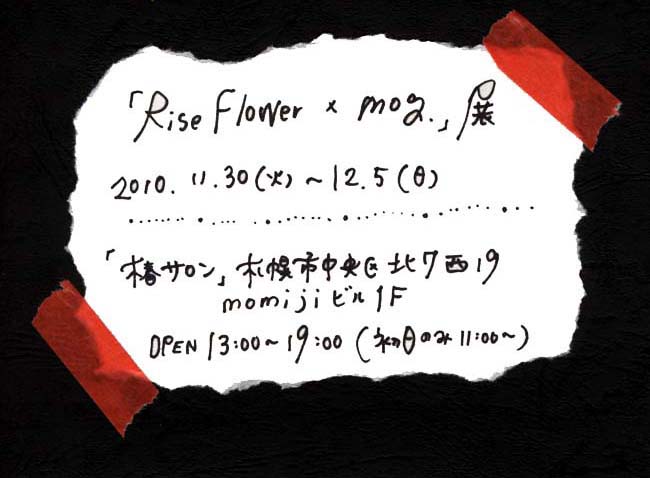 「Rise Flower × mog.」展
2010. 11.30(火)〜12.5(日)
「椿サロン」札幌市中央区北7西19
momijiビル1F
OPEN 13:00〜19:00 (初日のみ11:00〜)